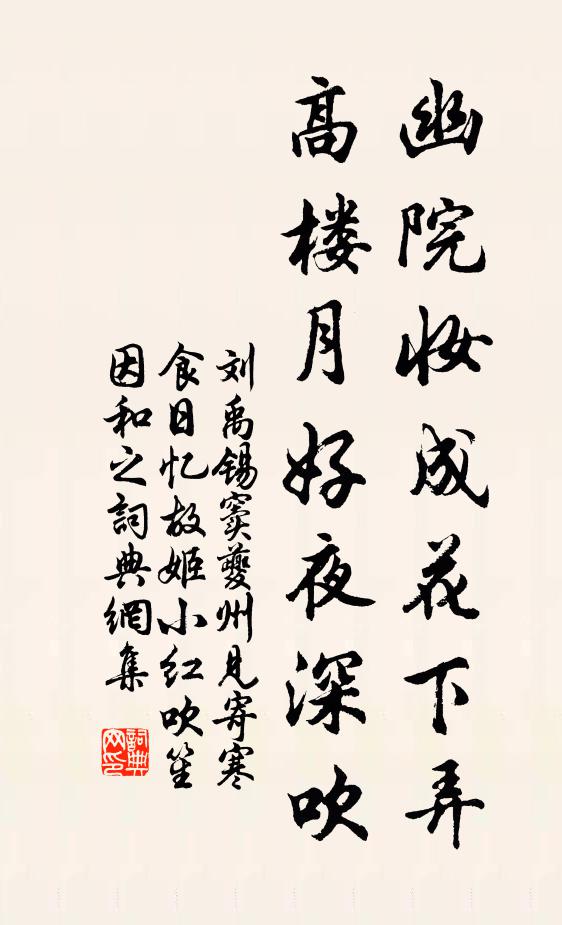 幽院妆成花下弄
高楼月好夜深吹
刘禹锡窦夔州见寄寒
食日忆故姬小红吹笙
因和之詞典網集
詞典
网印